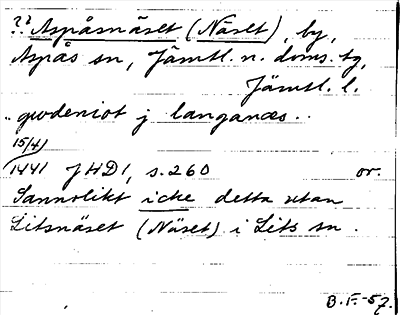 ?? Aspåsnäset (Näset), by,
Aspås sn, Jämtl. n. doms. tg,
Jämtl. l.
"gwdeniot j langanæs..
15/4
1441 JHD1, s. 260 or.
Sannolikt icke detta utan
Litsnäset (Näset) i Lits sn.
B.F.-57.